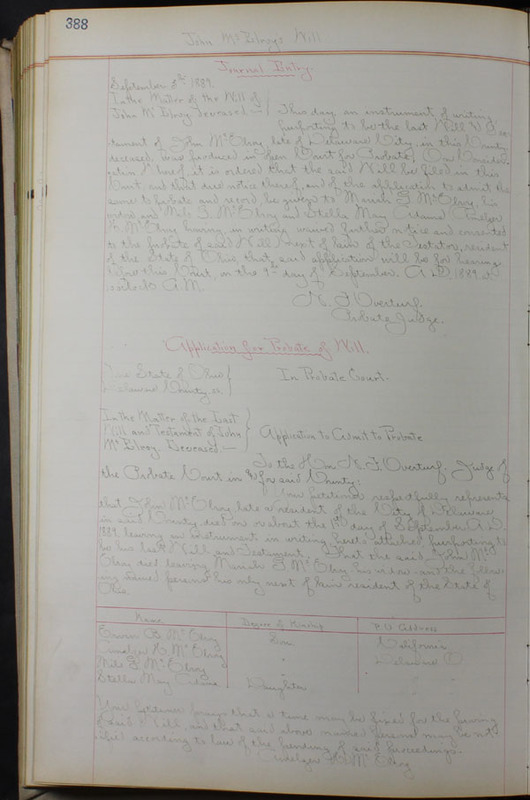 388
John McElroy's Will
Journal Entry.
September 5th 1889.
In the Matter of the Will of
John McElroy Deceased.—
This day an instrument of writing
purporting to be the last Will & Tes-
tament of John McElroy, late of Delaware City, in this County
deceased, was produced in open Court for Probate. On Consider-
ation thereof, it is ordered that the said Will be filed in this
Court, and that due notice thereof, and of the application to admit the
same to probate and record, be given to Mariah F. McElroy, his
widow and Milo F. McElroy and Stella May Adams
McElroy having, in writing waived further notice and consented
to the probate of said Will next of kin of the Testator, resident
of the State of Ohio that said application will be for hearing
before this Court, on the 9th day of September A.D. 1889 at
o'clock A.M.
N. F. Overturf.
Probate Judge.
Application for Probate of Will.
The State of Ohio
Delaware County, ss.
In Probate Court.
In the Matter of the Last
Will and Testament of John
McElroy Deceased.—
Application to Admit to Probate
To the Hon. N. F. Overturf, Judge of
the Probate Court in & for said County:
Your petitioner respectfully represents
that John McElroy, late a resident of the City of Delaware
in said County, died on or about the 1st day of September A.D.
1889 leaving an instrument in writing hereto attached purporting to
be his last Will and Testament. That the said John Mc
Elroy died leaving Mariah F. McElroy his widow and the follow-
ing named persons his only next of kin resident of the State of
Ohio.
Name Degree of Kinship P.O. Address
McElroy Son California
McElroy " Delaware O.
Milo F. McElroy " "
Stella May Adams Daughter "
Your petitioner prays that a time may be fixed for the proving
of said Will, and that said above named persons may be not-
ified according to law of the pending of said proceedings.
McElroy